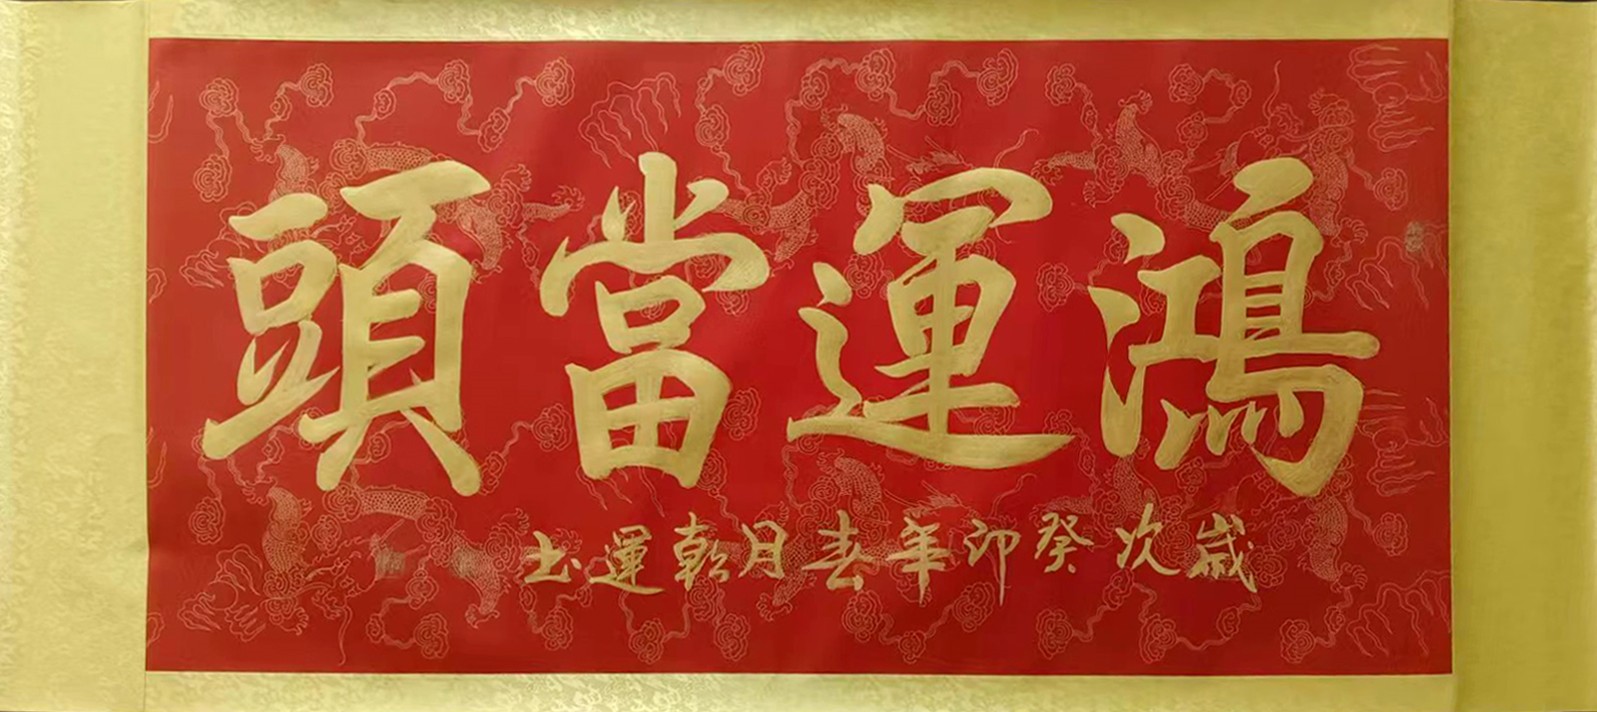 鴻運當頭
歲次癸卯年春月乾運书